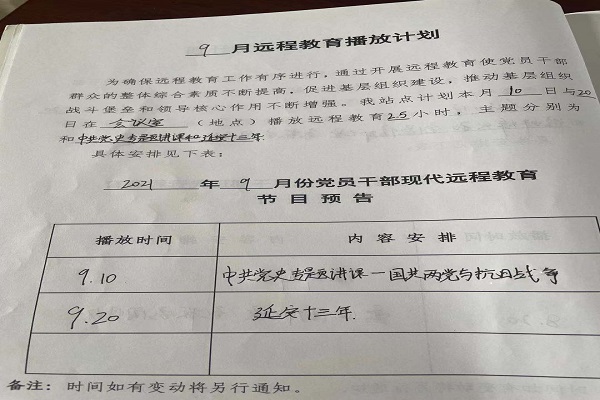 9 月远程教育播放计划
为确保远程教育工作有序进行，通过开展远程教育使党员干部
群众的整体综合素质不断提高，促进基层组织建设，推动基层组织
战斗堡垒和领导核心作用不断增强。我站点计划本月 10 日与20
日在 会议室 （地点）播放远程教育2.5小时，主题分别为
和中共党史专题讲课和延安十三年
具体安排见下表：
2021 年 9 月份党员干部现代远程教育
节目预告
播放时间 内容安排
9.10 中共党史专题讲课－国共两党与抗日战争
9.20 延安十三年.
备注：时间如有变动将另行通知。